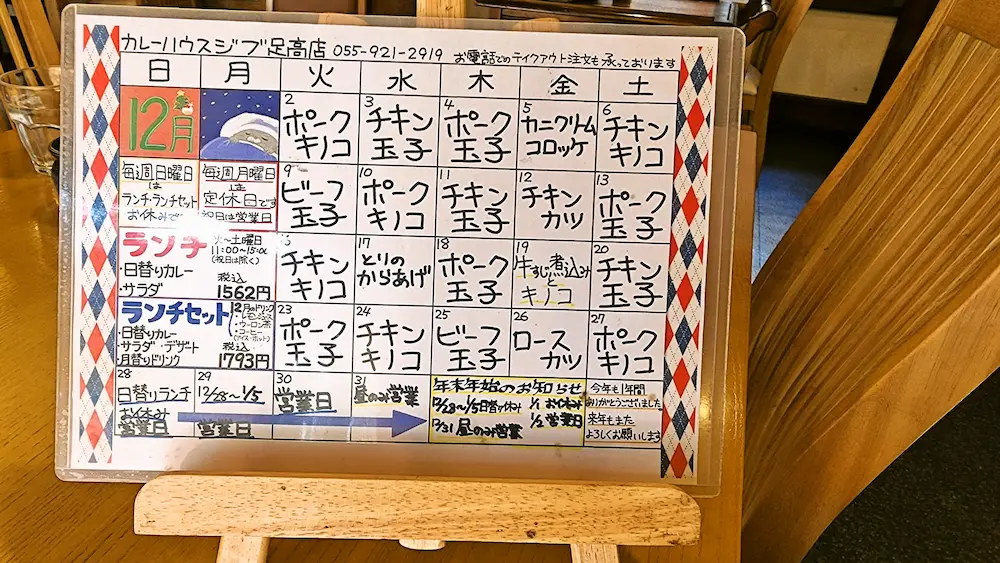 カレーハウスジブ足高店 055-921-2919 お電話でのテイクアウト注文も承っております
日 月 火 水 木 金 土
12月
2 ポークキノコ
3 チキン玉子
4 ポーク玉子
5 カニクリームコロッケ
6 チキンキノコ
毎週日曜日
は
ランチ・ランチセット
お休みで
毎週月曜日
は
定休日です
祝日は営業日
9 ビーフ玉子
10 ポークキノコ
11 チキン玉子
12 チキンカツ
13 ポーク玉子
ランチ 火〜土曜日
11:00〜15:00
(祝日は除く)
・日替りカレー
・サラダ
税込
1562円
チキンキノコ
17 とりのからあげ
18 ポーク玉子
19 牛すじ煮込みとキノコ
20 チキン玉子
ランチセット
12月のドリンク
・ウーロン茶
・コーヒー
・日替りカレー
・サラダ・デザート
・月替りドリンク
税込
1793円
23 ポーク玉子
24 チキンキノコ
25 ビーフ玉子
26 ロースカツ
27 ポークキノコ
28 日替りランチ
お休み
営業日
29 12/28〜1/5
営業日
30 営業日
31 昼のみ営業
年末年始のお知らせ
12/28〜1/5日替りお休み
12/31 昼のみ営業
1/1 お休み
1/2 営業日
今年も1年間
ありがとうございました
来年もまた
よろしくお願いします